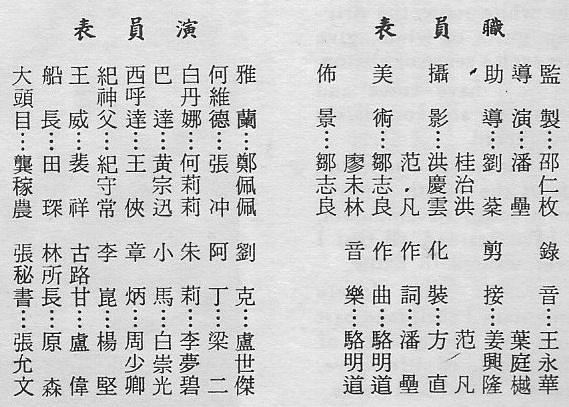 職員表
監製…邵仁枚
導演…潘壘
助導…劉
桂治洪
攝影…洪慶雲
范凡
美術…鄒志良
廖未林
佈景…鄒志良
錄音…王永華
葉庭樾
剪接…姜興隆
范凡
化裝…方直
作詞…潘壘
作曲…駱明道
音樂…駱明道
演員表
雅蘭…鄭佩佩
何維德…張冲
白丹娜…何莉莉
巴達…黃宗迅
西呼達…王俠
紀神父…紀守常
王威…裴祥
船長…田琛
大頭目…龔稼農
劉克…盧世傑
阿丁…梁二
朱莉…李夢碧
小馬…白崇光
章炳…周少卿
李崑…楊堅
古路甘…盧偉
林所長…原森
張秘書…張允文